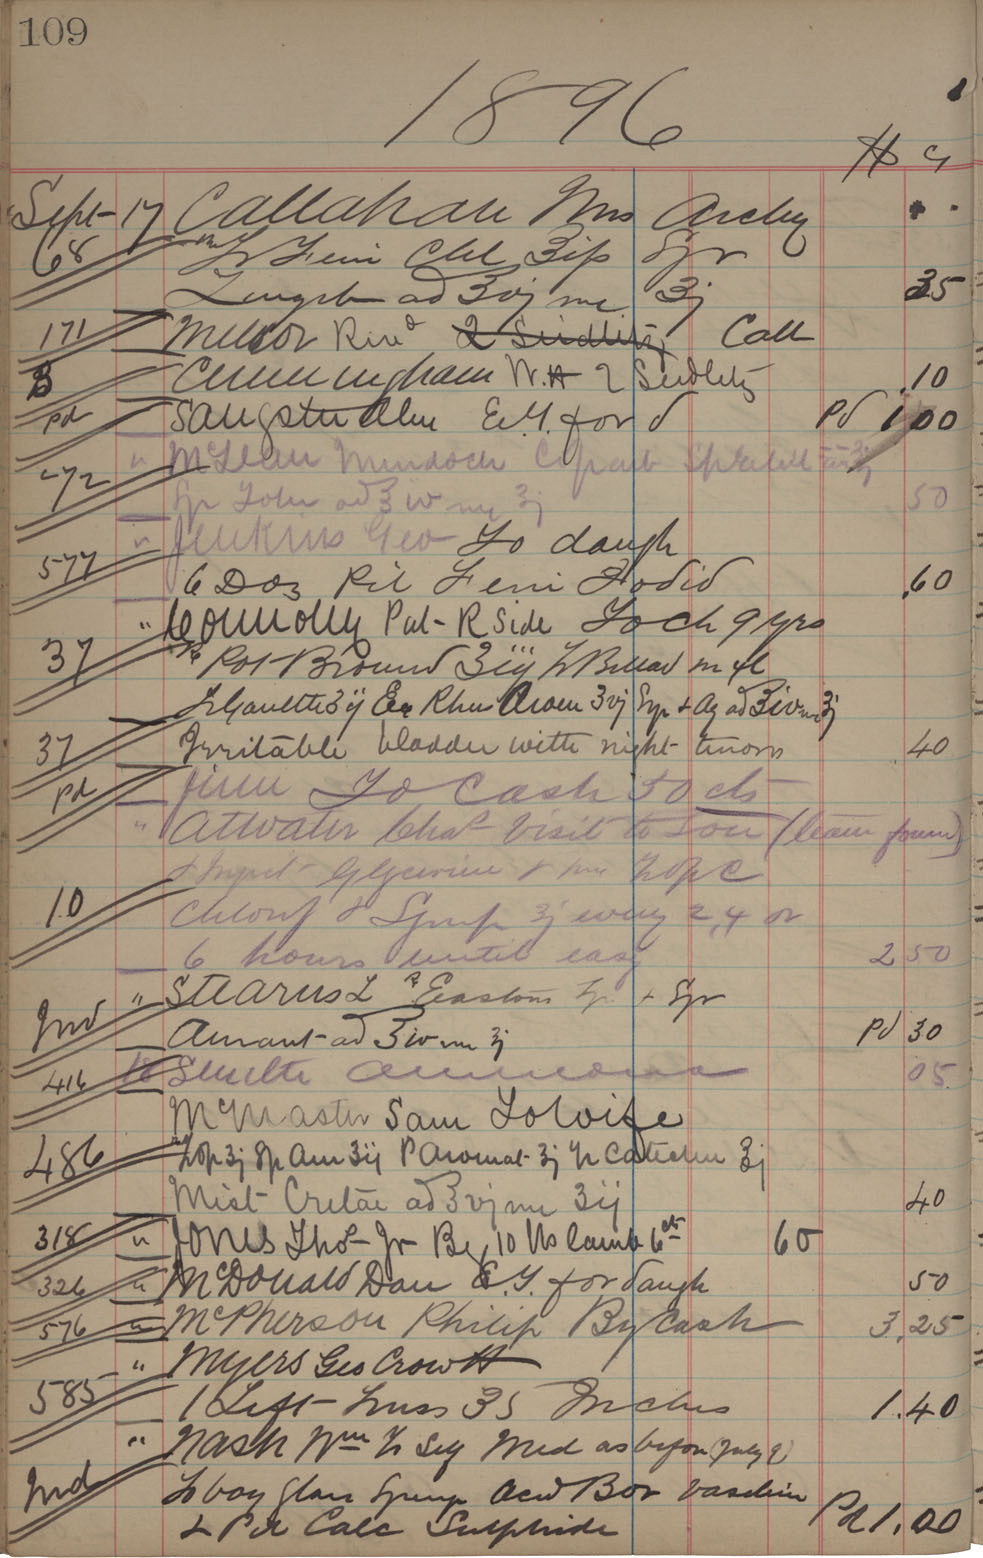 109
1896
$ c
Sept 17 Callahan Mrs Archy
68 Tr Ferri Chl ʒips Syr
ad ʒvj me ʒj 35
171 Mellor Rind 2 Seidlitz Call
8 Cunningham W.H 2 Seidlitz .10
pd E.T. for d pd 1.00
" McLean Murdoch
472 Syr Tolu ad ʒiv me ʒj 50
" Jenkins Geo To daugh
577 6 Doz Pil Ferri Iodid .60
" Connolly Pat - R Side To ch 9 yrs
37 Pot Bromid ʒiij Tr Bellad m xl
ʒij Ex Rhus Arom ʒvj Syr & Aq ad ʒiv me ʒj
37 Irritable bladder with night terrors 40
pd To Cash 50 cts
" Atwater Chas Visit to Son
Glycerine &
10 Chlorof & Syrup ʒj every 2, 4 or
6 hours until easy 2 50
" Stearns L ℞ Eastons Syr & Syr
Ind Aurant ad ʒiv me ʒj Pd 30
416 18 Ammonia 05
McMaster Sam To Wife
486 ʒj Sp Am ʒij P Aromat ʒj Tr Catechu ʒj
Mist Cretae ad ʒvj me ʒij 40
318 " Jones Thos Jr By 10 lbs lamb 6cts 60
326 " McDonald Dan E.T. for daugh 50
576 " McPherson Philip By Cash 3.25
" Myers Geo Crow H
585 1 Left Truss 35 Inches 1.40
" Nash Wm Tr Med as before (July 9)
Ind glass Syringe Acid Bor vaseline
& Pil Calc Sulphide Pd 1.00